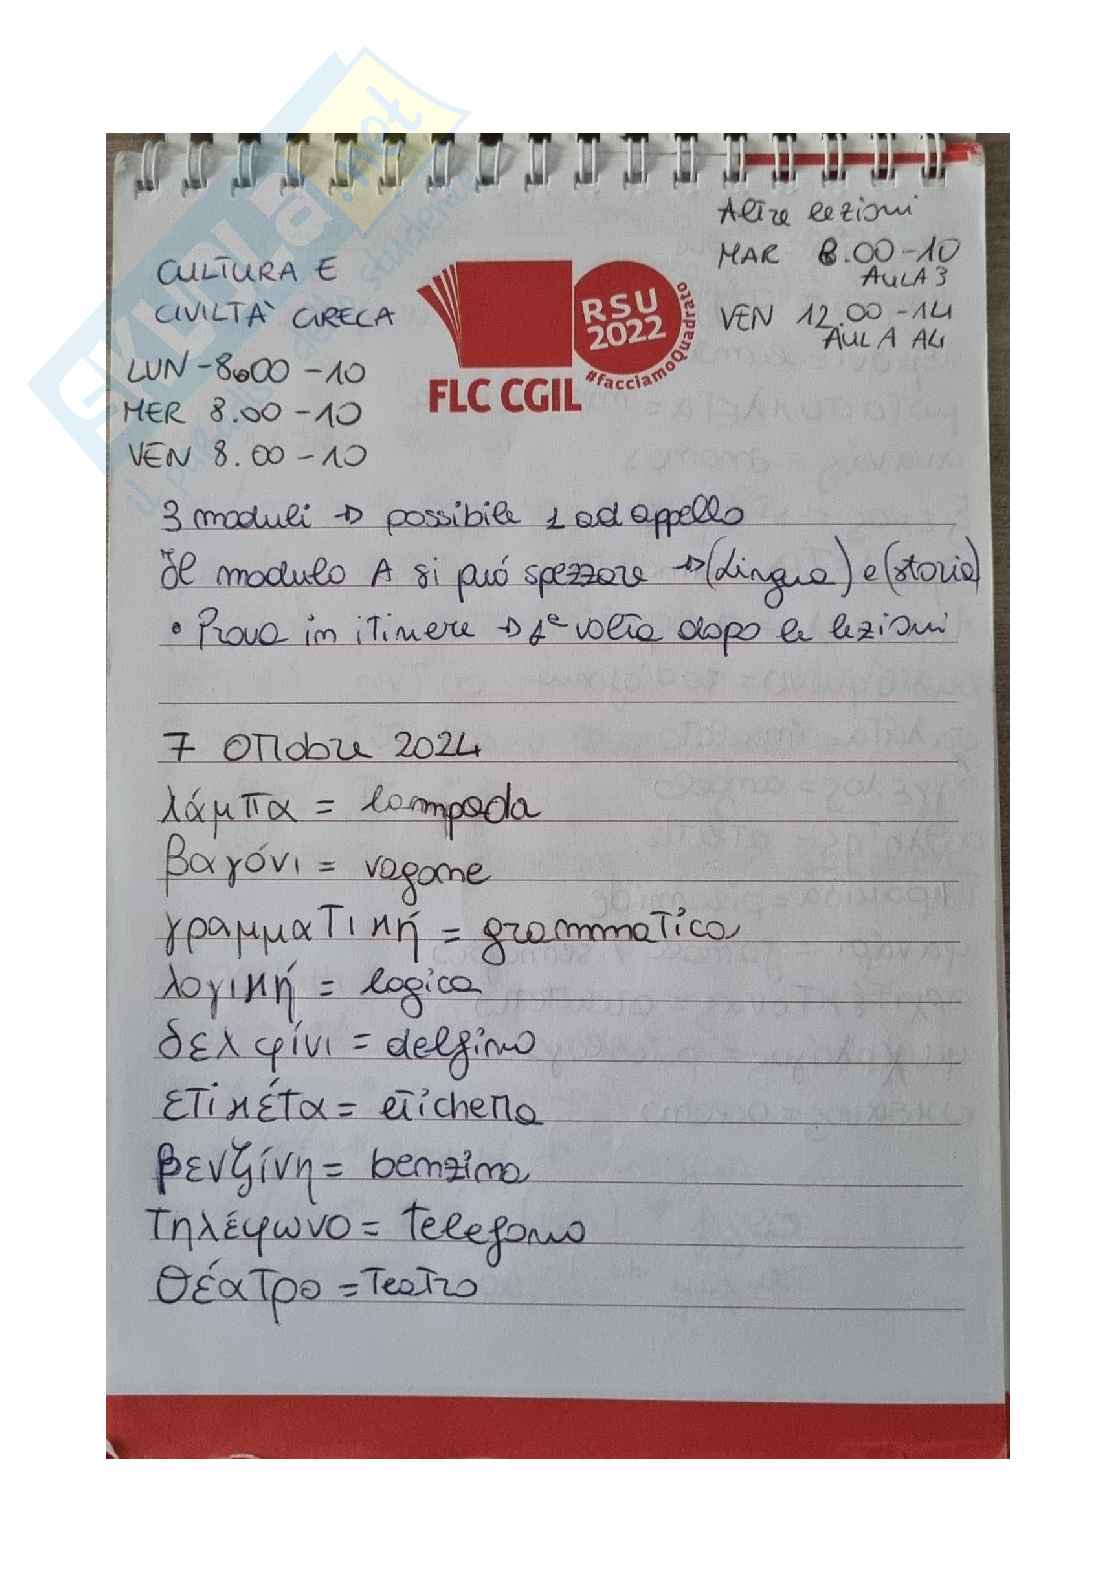 CULTURA E
CIVILTÀ GRECA
LUN - 8.00 - 10
MER 8.00 - 10
VEN 8.00 - 10
Altre lezioni
MAR 8.00 - 10
AULA 3
VEN 12.00 - 14
AULA A4
RSU
2022
#facciamoQuadrato
FLC CGIL
3 moduli → possibile 1 ad appello
Il modulo A si può spezzare → (Lingua) e (storia)
• Prova in itinere → 1ª volta dopo le lezioni
7 Ottobre 2024
λάμπα = lampada
βαγόνι = vagone
γραμματική = grammatica
λογική = logica
δελφίνι = delfino
ετικέτα = etichetta
βενζίνη = benzina
τηλέφωνο = telefono
θέατρο = Teatro
SKUOLA.net